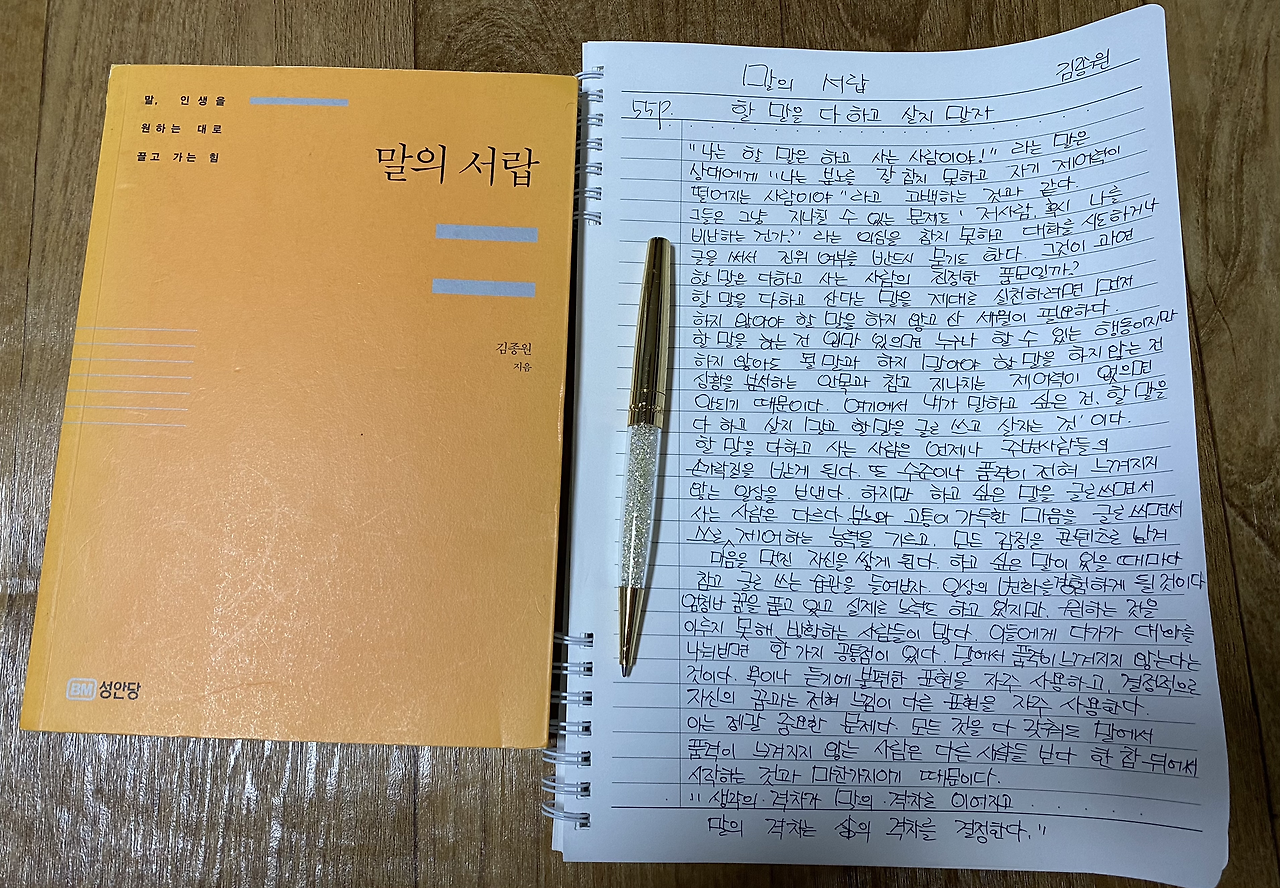 말, 인생을
원하는 대로
끌고 가는 힘
말의 서랍
김종원
지음
BM 성안당
말의 서랍 김종원
55P. 할 말을 다 하고 살지 말자
"나는 할 말은 하고 사는 사람이야!" 라는 말은
상대에게 "나는 분노를 잘 참지 못하고 자기 제어력이
떨어지는 사람이야"라고 고백하는 것과 같다.
그들은 그냥 지나칠 수 있는 문제도 '저사람, 혹시 나를
비난하는 건가?' 라는 의심을 참지 못하고 대화를 시도하거나
글을 써서 진위 여부를 반드시 묻기도 한다. 그것이 과연
할 말을 다하고 사는 사람의 진정한 풍모일까?
할 말을 다하고 산다는 말을 제대로 실천하려면 먼저
하지 않아야 할 말을 하지 않고 산 세월이 필요하다.
할 말을 하는 건 입만 있으면 누구나 할 수 있는 행동이지만
하지 않아도 될 말과 하지 말아야 할 말을 하지 않는 건
상황을 분석하는 안목과 참고 지나치는 제어력이 없으면
안되기 때문이다. 여기에서 내가 말하고 싶은 건, '할 말을
다 하고 살지 말고 할 말을 글로 쓰고 살자는 것' 이다.
할 말을 다하고 사는 사람은 언제나 주변사람들의
손가락질을 받게 된다. 또 수준이나 품격이 전혀 느껴지지
않는 일상을 보낸다. 하지만 하고 싶은 말을 글로쓰면서
사는 사람은 다르다. 분노와 고통이 가득한 마음을 글로 쓰면서
스스로 제어하는 능력을 기르고, 모든 감정을 콘텐츠로 남겨
마음을 멋진 자신을 쌓게 된다. 하고 싶은 말이 있을 때마다
참고 글로 쓰는 습관을 들여보자. 일상의 변화를 경험하게 될 것이다
엄청난 꿈을 품고 있고 실제로 노력도 하고 있지만, 원하는 것을
이루지 못해 방황하는 사람들이 많다. 이들에게 다가가 대화를
나눠보면 한 가지 공통점이 있다. 말에서 품격이 느껴지지 않는다는
것이다. 욕이나 듣기에 불편한 표현을 자주 사용하고, 결정적으로
자신의 꿈과는 전혀 느낌이 다른 표현을 자주 사용한다.
이는 정말 중요한 문제다. 모든 것을 다 갖춰도 말에서
품격이 느껴지지 않는 사람은 다른 사람들 보다 한 참 뒤에서
시작하는 것과 마찬가지이기 때문이다.
"생각의 격차가 말의 격차로 이어지고
말의 격차는 삶의 격차를 결정한다."